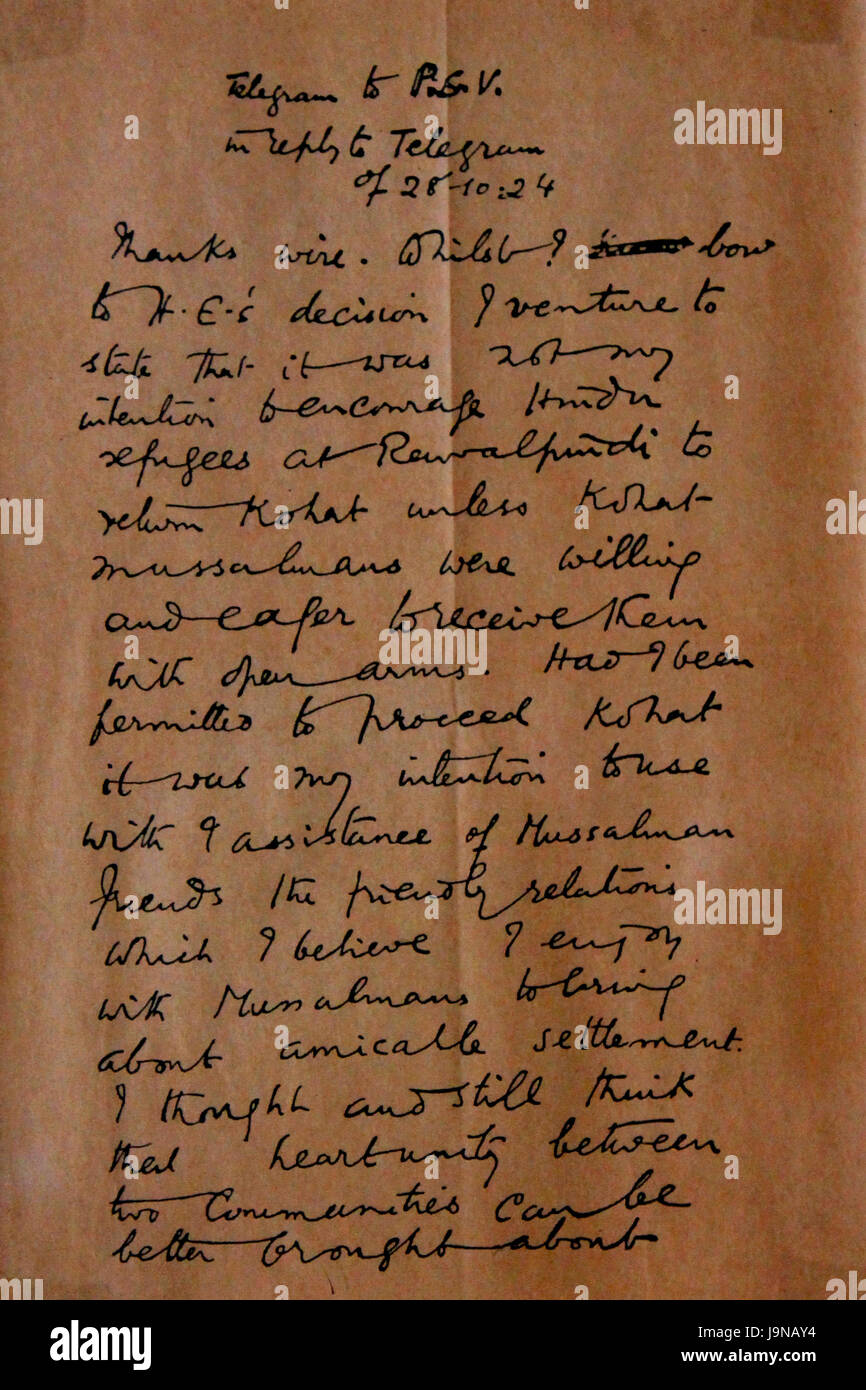 Telegram to P.S.V.
in reply to Telegram
of 28-10:24
Thanks wire. Whilst I bow
to H.E.'s decision I venture to
state that it was not my
intention to encourage Hindu
refugees at Rawalpindi to
return Kohat unless Kohat
mussalmans were willing
and eager to receive them
with open arms. Had I been
permitted to proceed Kohat
it was my intention to use
with assistance of Mussalman
friends the friendly relations
which I believe I enjoy
with Mussalmans to bring
about amicable settlement.
I thought and still think
that heart unity between
two Communities can be
better brought about
alamy
Image ID: J9NAY4
www.alamy.com